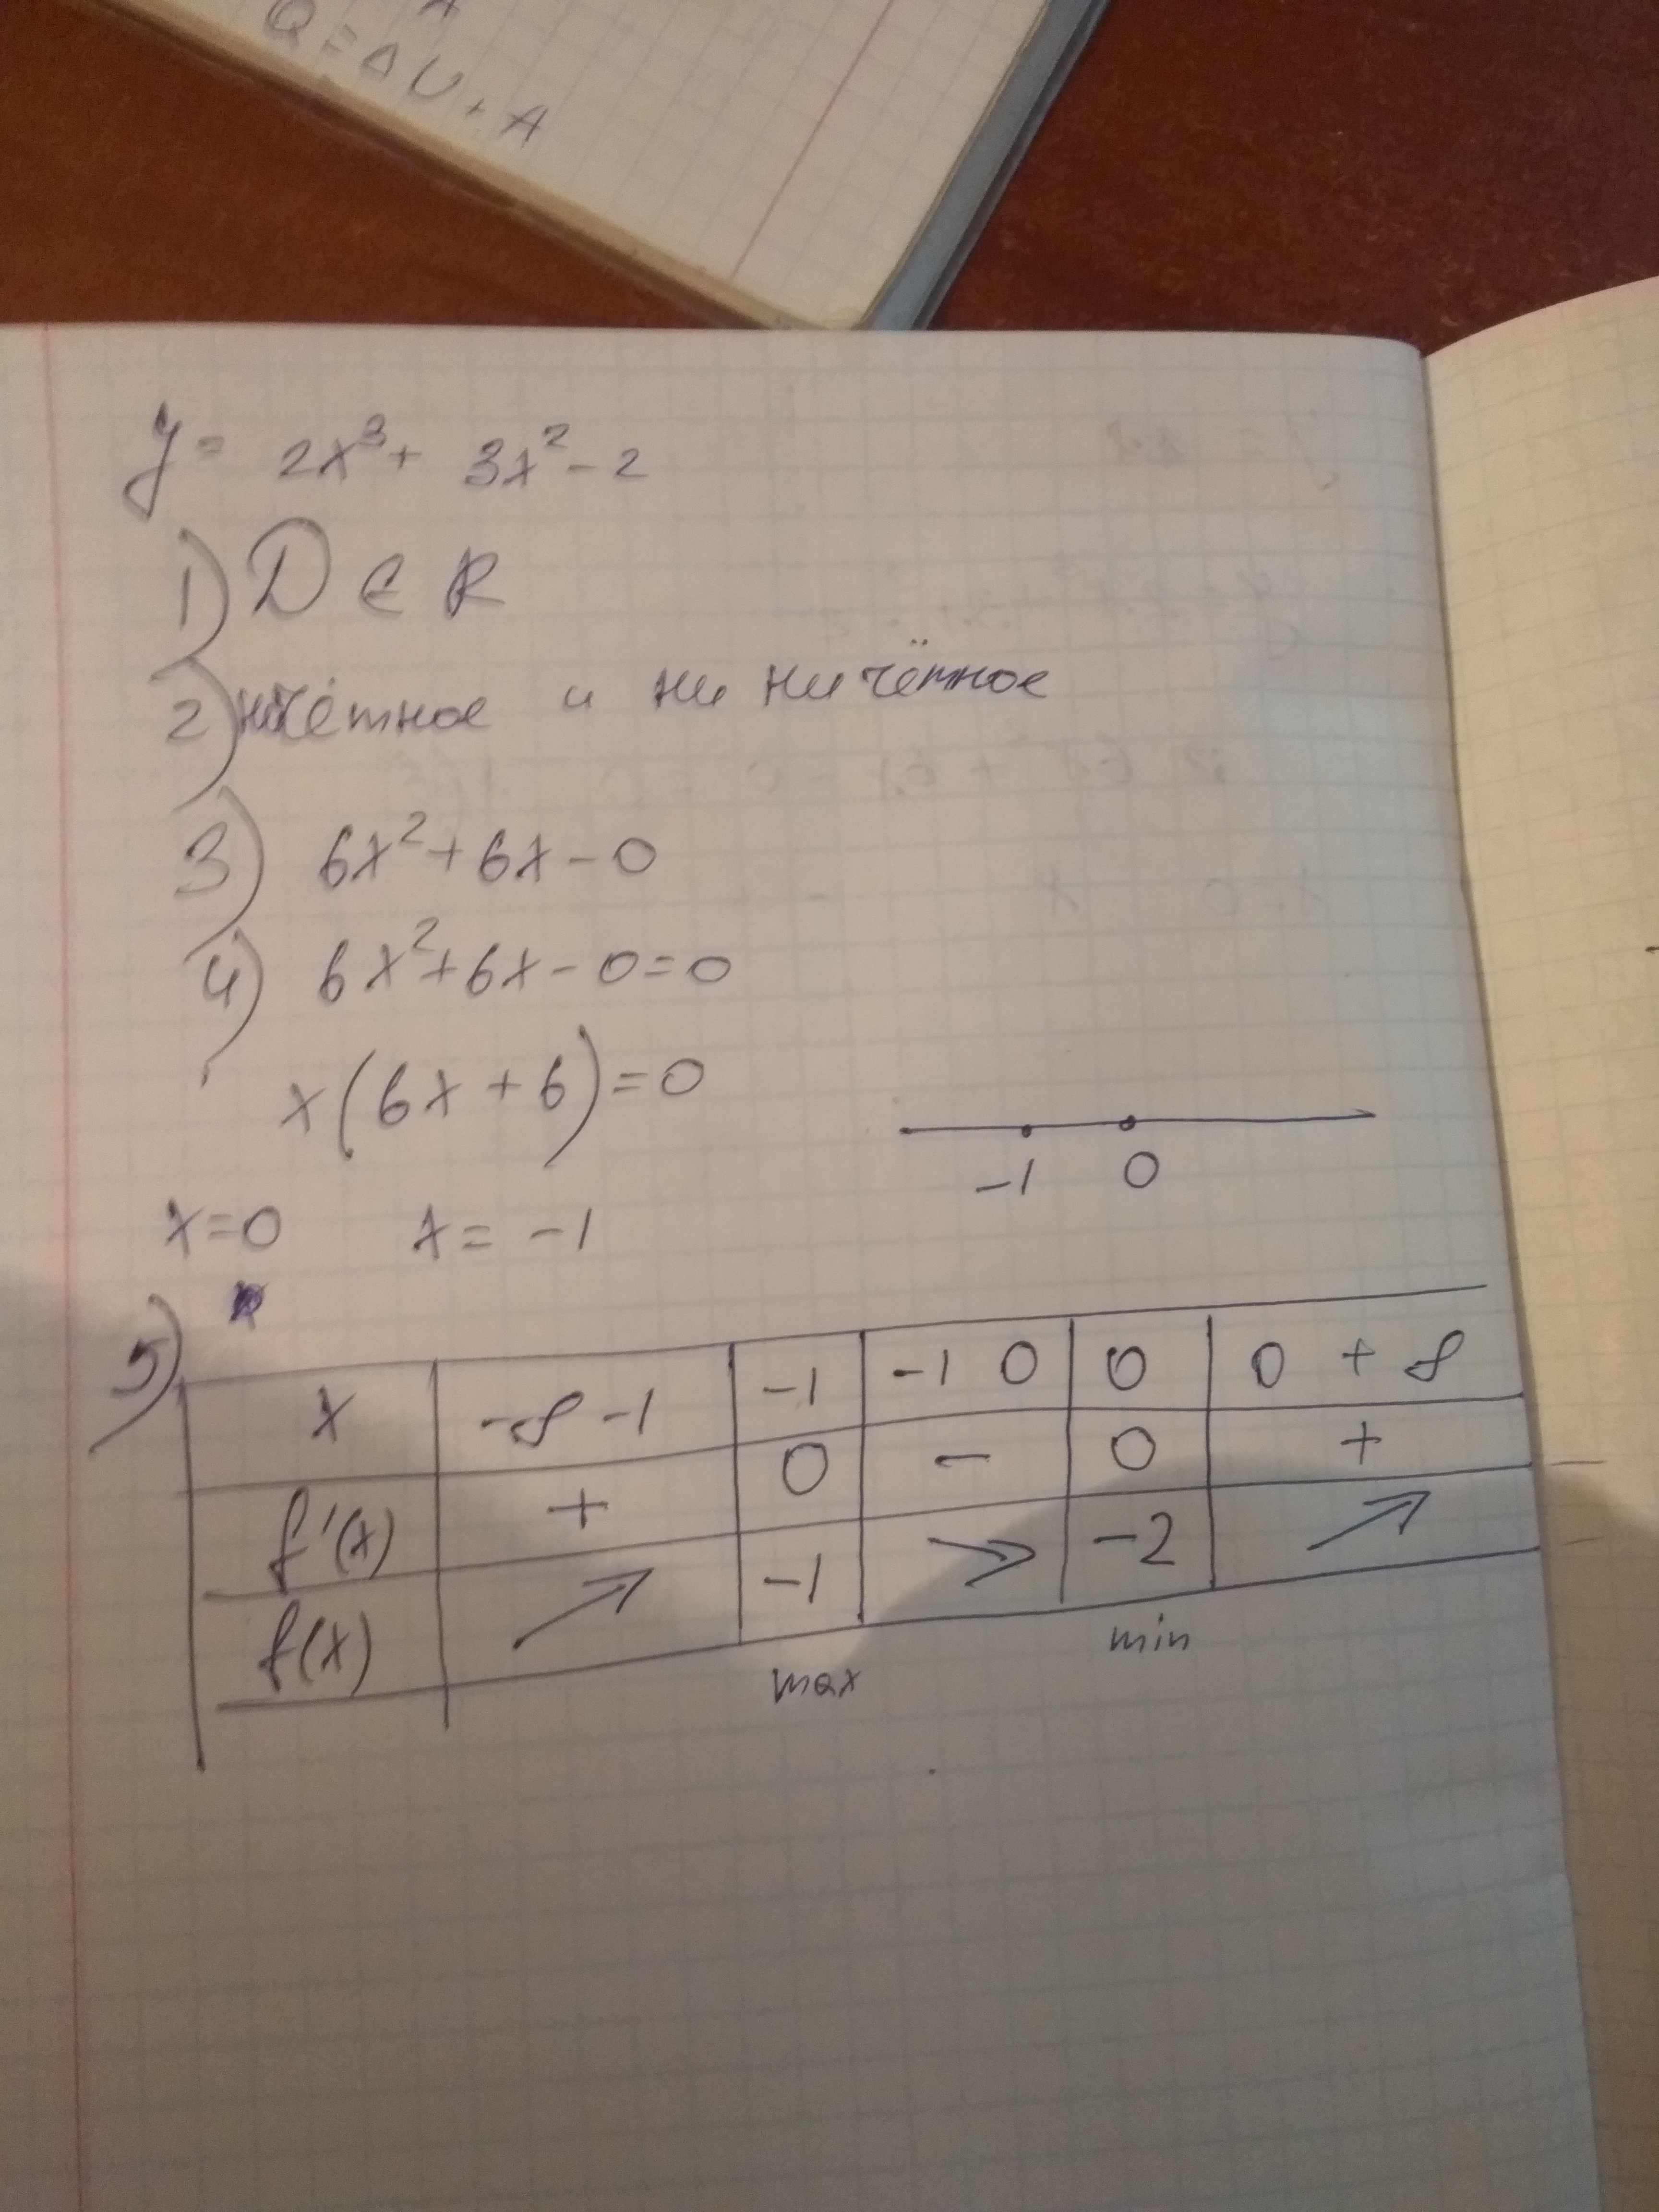 Q = Δ U + A
y = 2x³ + 3x² - 2
1) D ∈ R
2) чётное и ни ничётное
3) 6x² + 6x - 0
4) 6x² + 6x - 0 = 0
x(6x + 6) = 0
-1 0
x = 0 x = -1
5)
x -∞ -1 -1 -1 0 0 0 + ∞
f'(x) + 0 - 0 +
f(x) ↗ -1 ↘ -2 ↗
max min